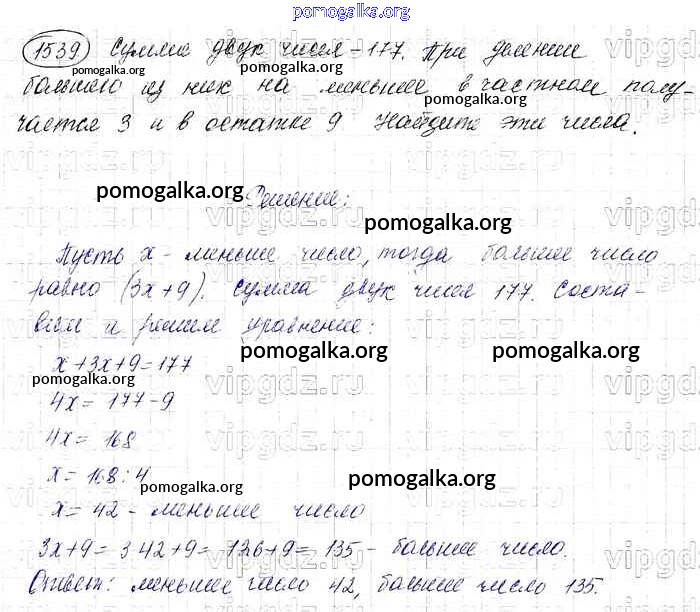 pomogalka.org
1539 Сумма двух чисел – 177. При делении
pomogalka.org pomogalka.org
большего из них на меньшее в частном полу-
pomogalka.org
чается 3 и в остатке 9 Найдите эти числа.
pomogalka.org Решение:
pomogalka.org
Пусть x - меньшее число, тогда большее число
равно (3x+9). Сумма двух чисел 177. Соста-
вим и решим уравнение:
pomogalka.org pomogalka.org
x+3x+9=177
pomogalka.org
4x= 177-9
4x= 168
x= 168:4
pomogalka.org pomogalka.org
x= 42 - меньшее число
3x+9= 3·42+9= 126+9= 135 - большее число.
Ответ: меньшее число 42, большее число 135.
vipgdz.ru